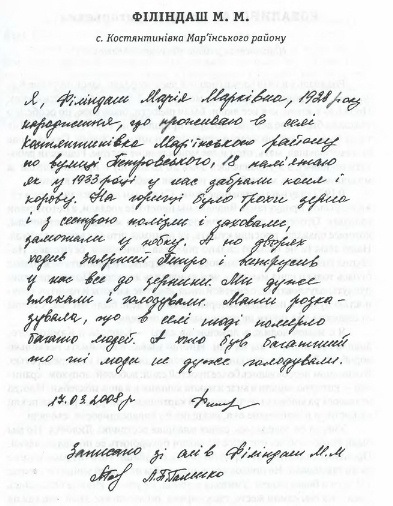 ФІЛІНДАШ М. М.
с. Костянтинівка Мар'їнського району
Я, Філіндаш Марія Марківна, 1928 року
народження, що проживаю в селі
Костянтинівка Мар'їнського району
по вулиці Петровського, 18 пам'ятаю
як у 1933 році у нас забрали коня і
корову. На горищі було трохи зерна
і з сестрою полізли і заховали,
замотали у юбку. А по дворах
ходив Заярний Петро і витрусив
у нас все до зернини. Ми дуже
плакали і голодували. Мати розка-
зувала, що в селі тоді померло
багато людей. А хто був багатший
то ті люди не дуже голодували.
17.03.2008р
Записано зі слів Філіндаш М.М